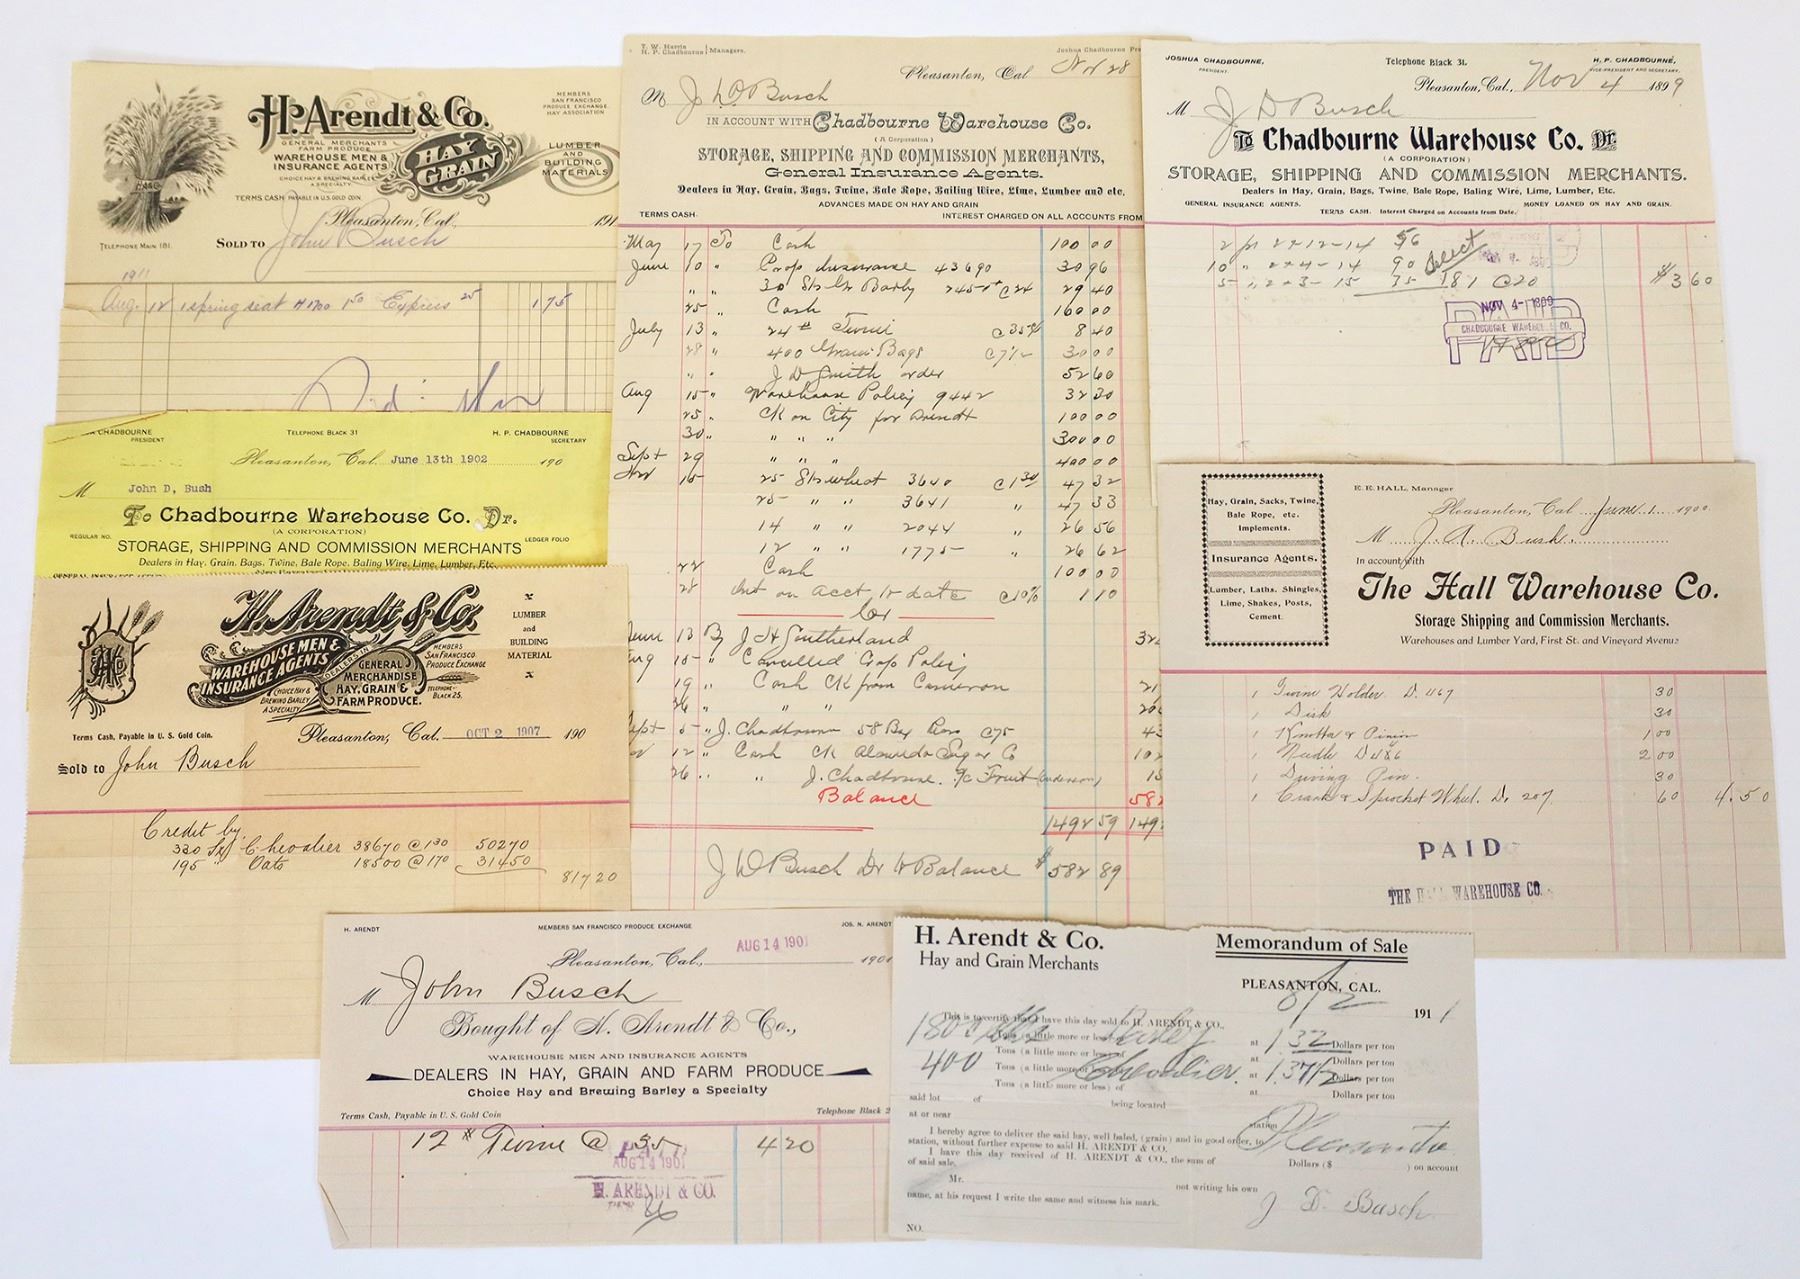 H. Arendt & Co.
GENERAL MERCHANTS
FARM PRODUCE
WAREHOUSE MEN &
INSURANCE AGENTS
CHOICE HAY & BREWING BARLEY
A SPECIALTY.
HAY
GRAIN
MEMBERS
SAN FRANCISCO
PRODUCE EXCHANGE
HAY ASSOCIATION
LUMBER
AND
BUILDING
MATERIALS
TERMS CASH, PAYABLE IN U.S. GOLD COIN
TELEPHONE MAIN 181.
Pleasanton, Cal., 191
SOLD TO John Busch
1911
Aug. 12 1 spring seat 1.50 Express 25 1.75
CHADBOURNE
PRESIDENT
TELEPHONE BLACK 31
H. P. CHADBOURNE
SECRETARY
Pleasanton, Cal. June 13th 1902 190
M John D, Bush
To Chadbourne Warehouse Co. Dr.
(A CORPORATION)
REGULAR NO. LEDGER FOLIO
STORAGE, SHIPPING AND COMMISSION MERCHANTS
Dealers in Hay, Grain, Bags, Twine, Bale Rope, Baling Wire, Lime, Lumber, Etc.
H. Arendt & Co.
WAREHOUSE MEN &
INSURANCE AGENTS
CHOICE HAY &
BREWING BARLEY
A SPECIALTY
DEALERS IN
GENERAL
MERCHANDISE
HAY, GRAIN &
FARM PRODUCE.
MEMBERS
SAN FRANCISCO
PRODUCE EXCHANGE
TELEPHONE
BLACK 25.
LUMBER
and
BUILDING
MATERIAL
Terms Cash, Payable in U. S. Gold Coin.
Pleasanton, Cal. OCT 2 1907 190
Sold to John Busch
Credit by
330 Chevalier 38670 @ 1 30 50270
195 " Oats 18500 @ 170 31450
81720
T. W. Harris
H. P. Chadbourne
Managers.
Joshua Chadbourne Pre
Pleasanton, Cal Nov 28
M J D Busch
IN ACCOUNT WITH Chadbourne Warehouse Co.
(A Corporation)
STORAGE, SHIPPING AND COMMISSION MERCHANTS,
General Insurance Agents.
Dealers in Hay, Grain, Bags, Twine, Bale Rope, Bailing Wire, Lime, Lumber and etc.
ADVANCES MADE ON HAY AND GRAIN
TERMS CASH. INTEREST CHARGED ON ALL ACCOUNTS FROM
May 17 To Cash 100 00
June 10 " Crop Insurance 43690 30 96
" " 30 Sks Barly 2450 @ 29 40
25 " Cash 160 00
July 13 " 24 # Twine @ 35 8 40
28 " 400 Grain Bags @ 7 1/2 30 00
" " J D Smith order 52 60
Aug 15 " Warehouse Policy 9442 32 30
25 " CK on City for Arendt 100 00
30 " " " " 300 00
Sept 29 " " " 400 00
Nov 16 25 Sks wheat 3640 @ 1 30 47 32
25 " " 3641 " 47 33
14 " " 2044 " 26 56
12 " " 1775 " 26 62
22 Cash 100 00
28 Int on acct to date @ 10% 1 10
Cr
June 13 By J H Sutherland 32
Aug 15 " Cancelled Crop Policy
19 " Cash CK from Cameron 21
26 " " "
Sept 5 " J. Chadbourne 58 @ 75 43
12 " Cash CK Alameda Sugar Co 10
26 " " J. Chadbourne. Fruit (Anderson) 15
Balance 582
1492 59 149
J D Busch Dr to Balance $ 582 89
JOSHUA CHADBOURNE,
PRESIDENT.
Telephone Black 31.
H. P. CHADBOURNE,
VICE-PRESIDENT AND SECRETARY.
Pleasanton, Cal., Nov 4 1899
M J D Busch
To Chadbourne Warehouse Co. Dr.
(A CORPORATION)
STORAGE, SHIPPING AND COMMISSION MERCHANTS.
Dealers in Hay, Grain, Bags, Twine, Bale Rope, Baling Wire, Lime, Lumber, Etc.
GENERAL INSURANCE AGENTS. MONEY LOANED ON HAY AND GRAIN.
TERMS CASH. Interest Charged on Accounts from Date.
2 pc 2 x 12 - 14 56
10 " 2 x 4 - 14 90 Select
5 " 2 x 3 - 15 35 181 @ 20 $ 3 60
NOV 4 - 1899
CHADBOURNE WAREHOUSE CO.
PAID
Hay, Grain, Sacks, Twine,
Bale Rope, etc.
Implements.
Insurance Agents.
Lumber, Laths, Shingles,
Lime, Shakes, Posts,
Cement.
E. E. HALL, Manager
Pleasanton, Cal June 1 1900
M J. A. Bush.
In account with
The Hall Warehouse Co.
Storage Shipping and Commission Merchants.
Warehouses and Lumber Yard, First St. and Vineyard Avenue
1 Twine Holder D. 1167 30
1 Disk 30
1 Knotter Pinion 1 00
1 Needle D 486 2 00
1 Driving Pin. 30
1 Crank & Sprocket Wheel D. 207 60 4.50
PAID
THE HALL WAREHOUSE CO.
H. ARENDT
MEMBERS SAN FRANCISCO PRODUCE EXCHANGE
JOS. N. ARENDT
Pleasanton, Cal., AUG 14 1901 1901
M John Busch
Bought of H. Arendt & Co.,
WAREHOUSE MEN AND INSURANCE AGENTS
DEALERS IN HAY, GRAIN AND FARM PRODUCE
Choice Hay and Brewing Barley a Specialty
Terms Cash, Payable in U. S. Gold Coin Telephone Black 2
12 # Twine @ 35 4 20
PAID
AUG 14 1901
H. ARENDT & CO.
H. Arendt & Co.
Hay and Grain Merchants
Memorandum of Sale
PLEASANTON, CAL.
8/2 1911
This is to certify that I have this day sold to H. ARENDT & CO.,
1800 Tons (a little more or less) of Barley at 1.32 Dollars per ton
400 Tons (a little more or less) of Chevalier. at 1.37 1/2 Dollars per ton
Tons (a little more or less) of at Dollars per ton
Tons (a little more or less) of at Dollars per ton
said lot of being located
at or near station Pleasanton
I hereby agree to deliver the said hay, well baled, (grain) and in good order, to
station, without further expense to said H. ARENDT & CO.
I have this day received of H. ARENDT & CO., the sum of
Dollars ($ ) on account
of said sale.
Mr. not writing his own
name, at his request I write the same and witness his mark.
J D. Busch
NO.